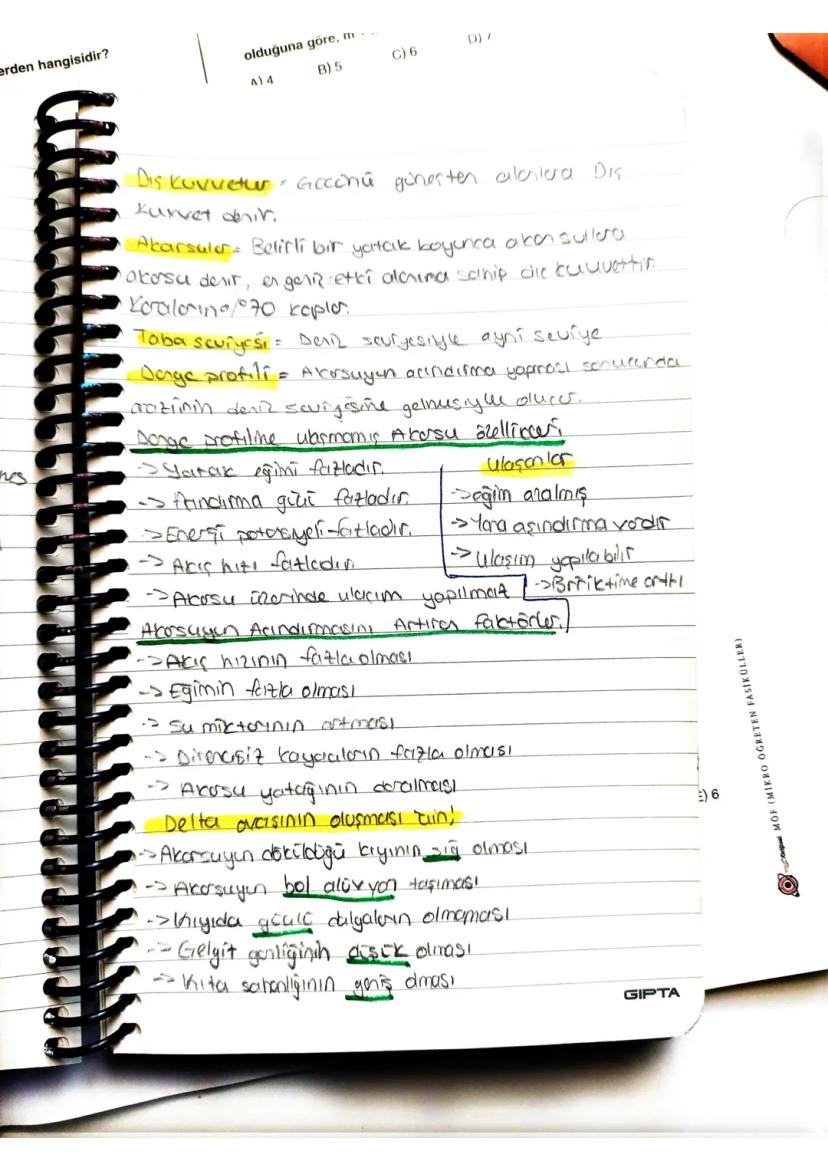 erden hangisidir?
olduğuna göre, m
A) 4 B) 5 C) 6 D) 7
Dış kuvvetler = Gücünü güneşten alanlara Dış
kuvvet denir.
Akarsular = Belirli bir yatak boyunca akan sulara
akarsu denir, en geniş etki alanına sahip dış kuvvettir.
Karaların %70 kaplar.
Taba seviyesi = Deniz seviyesiyle aynı seviye
Denge profili = Akarsuyun aşındırma yapması sonucunda
arazinin deniz seviyesine gelmesiyle oluşur.
Denge profiline ulaşmamış Akarsu özellikleri
-> Yatak eğimi fazladır.
-> Aşındırma gücü fazladır.
-> Enerji potansiyeli fazladır.
-> Akış hızı fazladır.
-> Akarsu üzerinde ulaşım yapılmaz
ulaşanlar
-> eğim azalmış
-> Yana aşındırma vardır
-> Ulaşım yapılabilir
-> Biriktirme arttı
Akarsuyun Aşındırmasını Artıran faktörler.
-> Akış hızının fazla olması
-> Eğimin fazla olması
-> Su miktarının artması
-> Dirençsiz kayaçların fazla olması
-> Akarsu yatağının daralması
Delta ovasının oluşması için!
-> Akarsuyun döküldüğü kıyının sığ olması
-> Akarsuyun bol alüvyon taşıması
-> Kıyıda güçlü dalgaların olmaması
-> Gelgit genliğinin düşük olması
-> Kıta sahanlığının geniş olması
GIPTA
E) 6
MÖF (MİKRO ÖĞRETEN FASİKÜLLER)